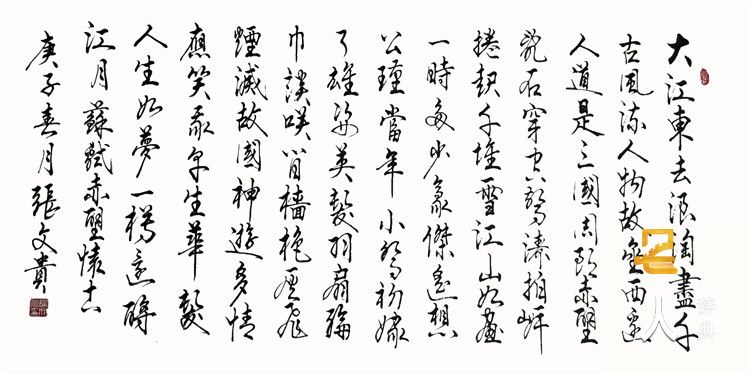 大江東去浪淘盡千
古風流人物故壘西邊
人道是三國周郎赤壁
亂石穿空驚濤拍岸
捲起千堆雪江山如畫
一時多少豪傑遙想
公瑾當年小喬初嫁
了雄姿英發羽扇綸
巾談咲間檣櫓灰飛
煙滅故國神遊多情
應笑我早生華髮
人生如夢一樽還酹
江月蘇軾赤壁懷古
庚子春月張文貴
人
辞典